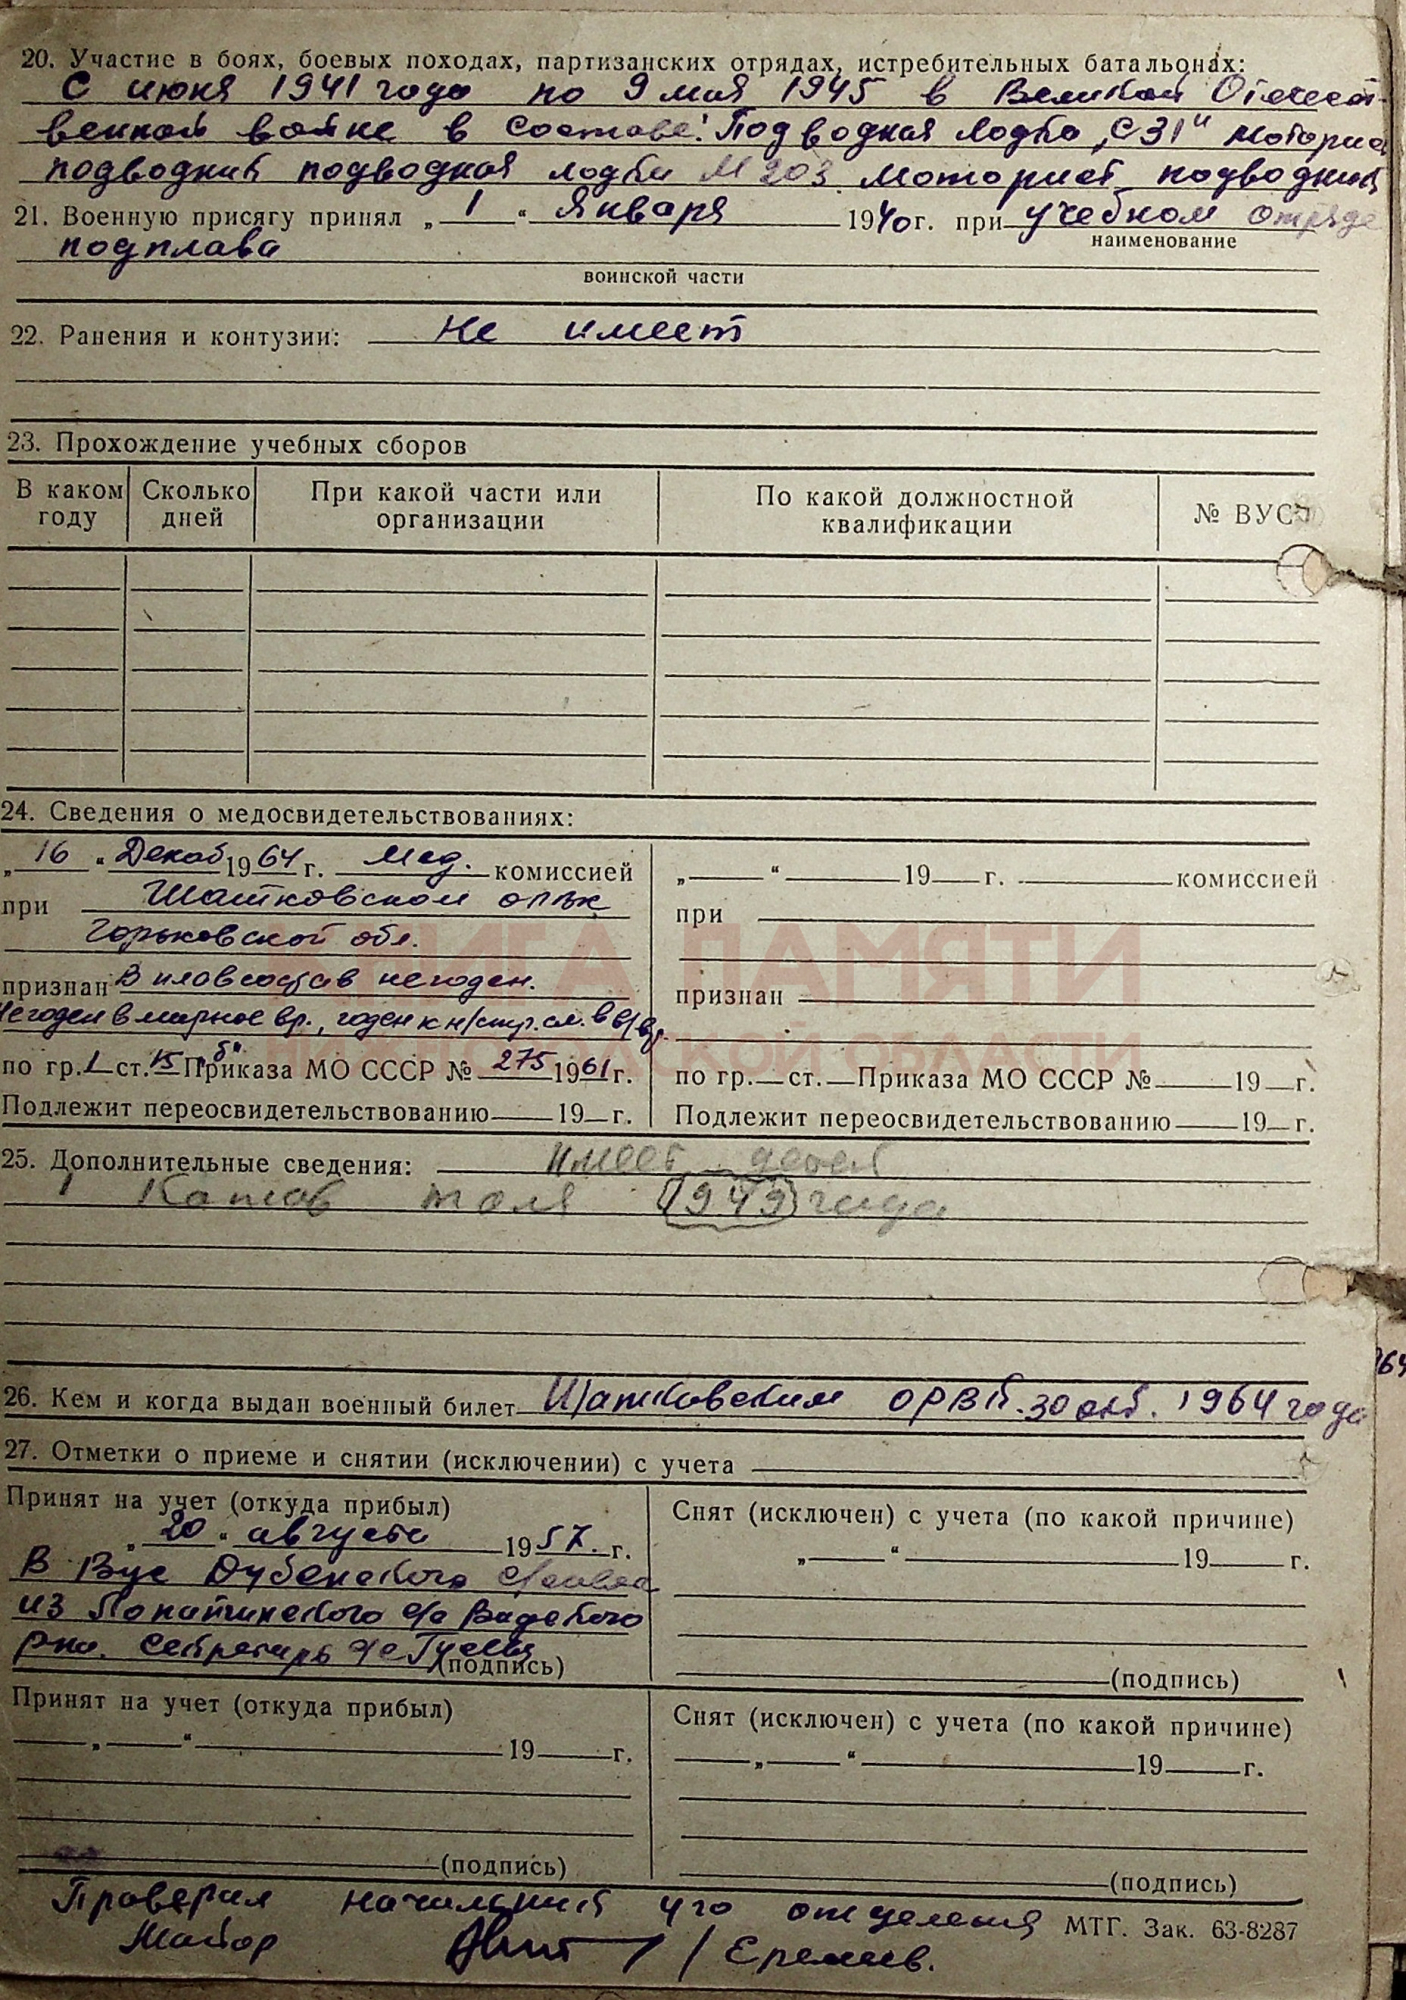 20. Участие в боях, боевых походах, партизанских отрядах, истребительных батальонах:
С июня 1941 года по 9 мая 1945 в Великой Отечест-
венной войне в составе: Подводная лодка „С 31“ моторист
подводник подводная лодка М 203 моторист подводник
21. Военную присягу принял „ 1 “ Января 1940 г. при учебном отряде
наименование
подплава
воинской части
22. Ранения и контузии: Не имеет
23. Прохождение учебных сборов
В каком году Сколько дней При какой части или организации По какой должностной квалификации № ВУС
24. Сведения о медосвидетельствованиях:
„ 16 “ Декаб 1964 г. Мед. комиссией
при Шатковском ОРВК
Горьковской обл.
признан В плавсостав негоден.
Негоден в мирное вр., годен к н/стр. сл. в в/вр.
по гр. 1 ст. 15 „б“ Приказа МО СССР № 275 1961 г.
Подлежит переосвидетельствованию 19 г.
„ “ 19 г. комиссией
при
признан
по гр. ст. Приказа МО СССР № 19 г.
Подлежит переосвидетельствованию 19 г.
КНИГА ПАМЯТИ
НИЖЕГОРОДСКОЙ ОБЛАСТИ
25. Дополнительные сведения: имеет детей
толя 1949 года
26. Кем и когда выдан военный билет Шатковским ОРВК. 30 окт. 1964 года
27. Отметки о приеме и снятии (исключении) с учета
Принят на учет (откуда прибыл)
„ 20 “ августа 1957. г.
В Вус Дубенского
из Лопатинского с/с Вадского
р-на. Секретарь с/с
(подпись)
Снят (исключен) с учета (по какой причине)
„ “ 19 г.
(подпись)
Принят на учет (откуда прибыл)
„ “ 19 г.
(подпись)
Снят (исключен) с учета (по какой причине)
„ “ 19 г.
(подпись)
Проверил начальник 4го отделения
МТГ. Зак. 63-8287
Майор / Еремеев.